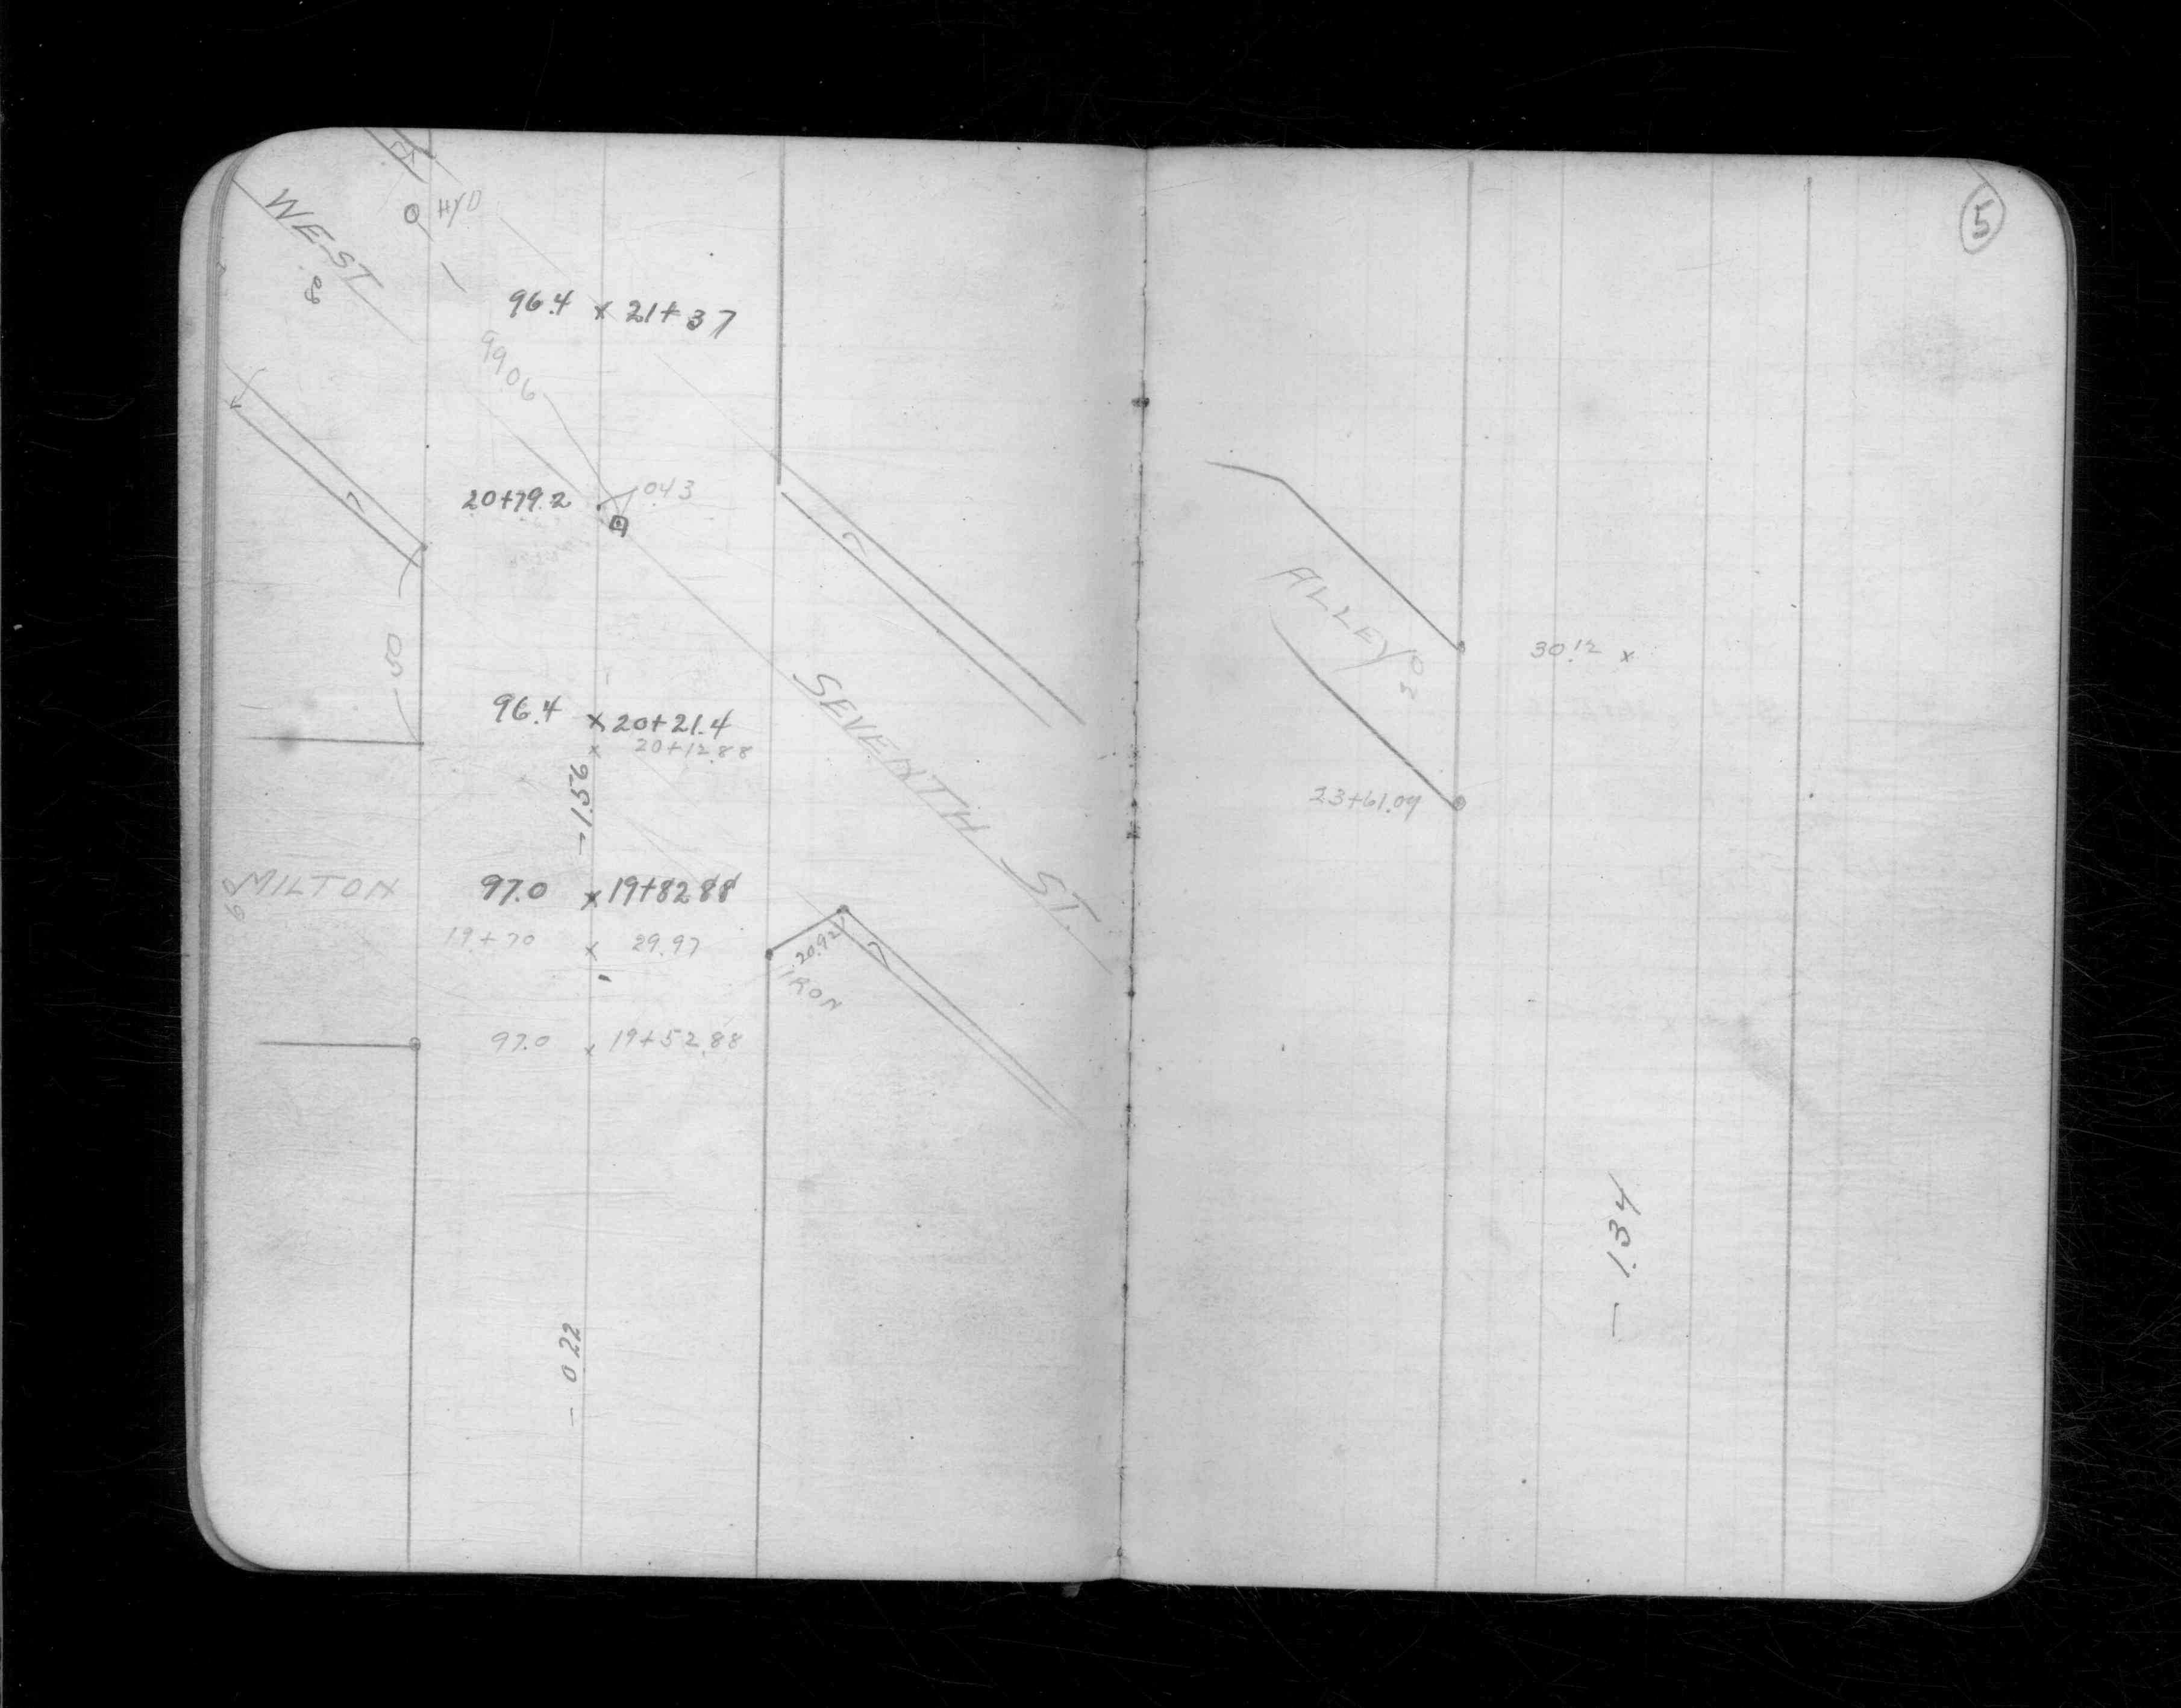 HYD
WEST
80
96.4 x 21+37
9906
20+79.2
.043
50
96.4 x 20+21.4
x 20+12.88
SEVENTH ST.
-1.56
60
MILTON
97.0 x 19+82.88
19+70 x 29.97
20.92
IRON
97.0 x 19+52.88
-022
5
ALLEY
20
30.12 x
23+61.09
-1.34